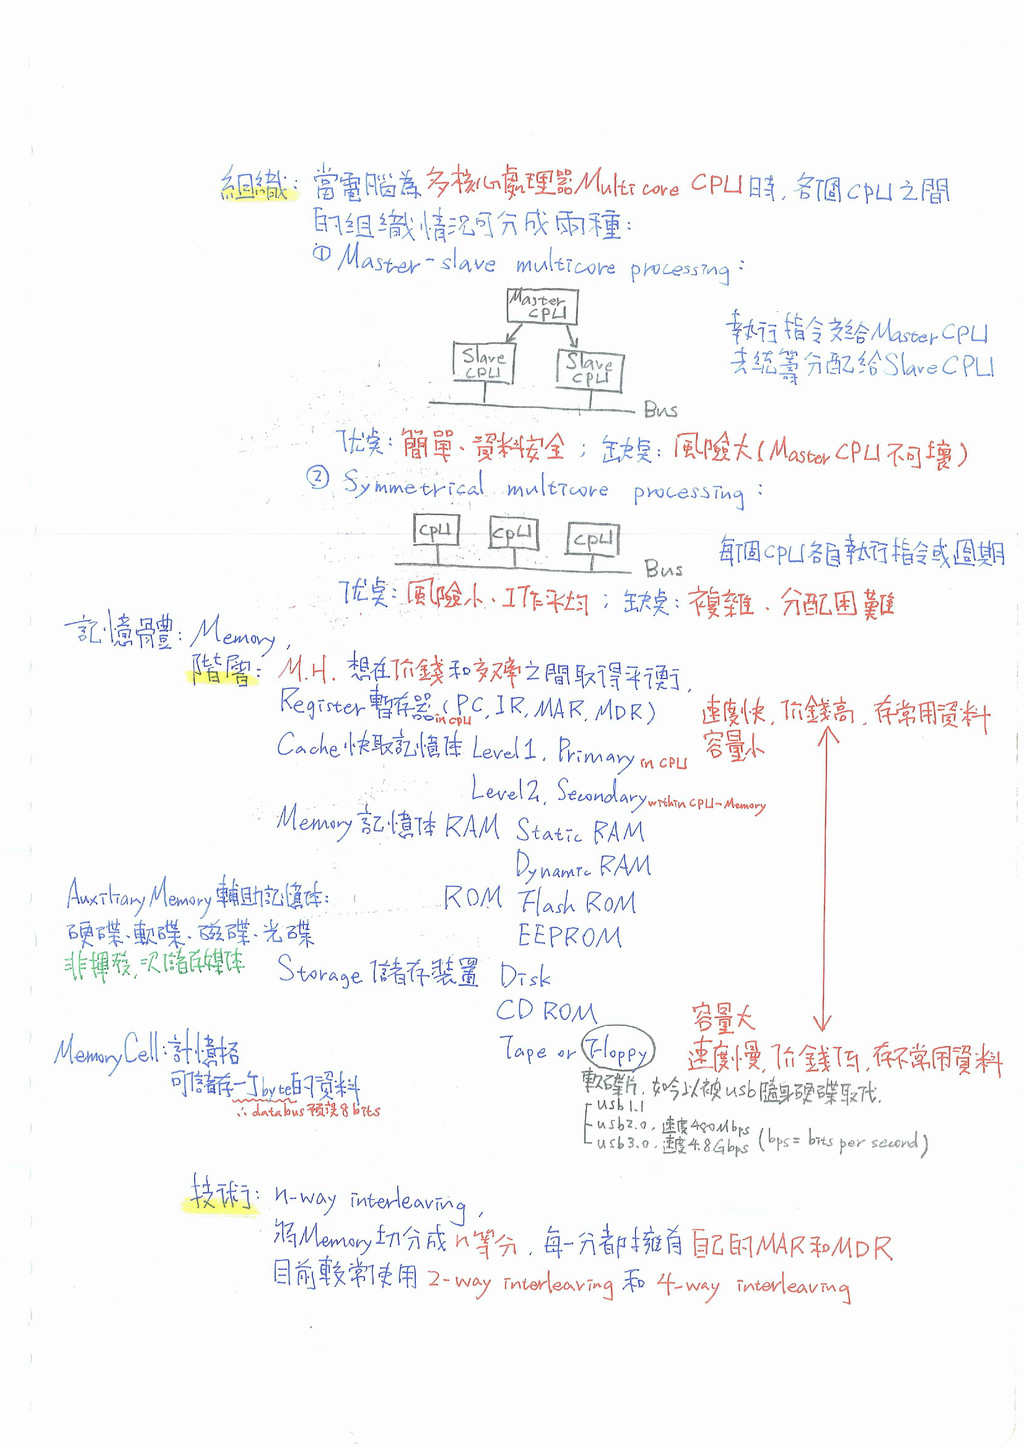 組織: 當電腦為多核心處理器Multicore CPU時, 各個CPU之間
的組織情況可分成兩種:
① Master-slave multicore processing:
Master CPU
Slave CPU
Slave CPU
Bus
執行指令交給Master CPU
去統籌分配給Slave CPU
优点: 簡單、資料安全 ; 缺点: 風險大(Master CPU不可壞)
② Symmetrical multicore processing:
CPU CPU CPU
Bus
每個CPU各自執行指令或週期
优点: 風險小、工作平均 ; 缺点: 複雜、分配困難
記憶體: Memory,
階層: M.H. 想在价錢和效率之間取得平衡,
Register 暫存器 in CPU (PC, IR, MAR, MDR)
速度快, 价錢高, 存常用資料
容量小
Cache 快取記憶体 Level 1, Primary in CPU
Level 2, Secondary within CPU-Memory
Memory 記憶体 RAM Static RAM
Dynamic RAM
ROM Flash ROM
EEPROM
Auxiliary Memory 輔助記憶体:
硬碟、軟碟、磁碟、光碟
非揮發, 次儲存媒体
Storage 儲存裝置 Disk
CD ROM
Tape or Floppy
容量大
速度慢, 价錢低, 存不常用資料
軟碟片, 如今以被usb隨身硬碟取代.
usb1.1
usb2.0, 速度480Mbps
usb3.0, 速度4.8Gbps (bps = bits per second)
Memory Cell: 計憶格
可儲存一个byte的資料
∴ databus 預設8 bits
技術: n-way interleaving,
將Memory切分成n等分, 每一分都擁有自己的MAR和MDR
目前較常使用 2-way interleaving 和 4-way interleaving